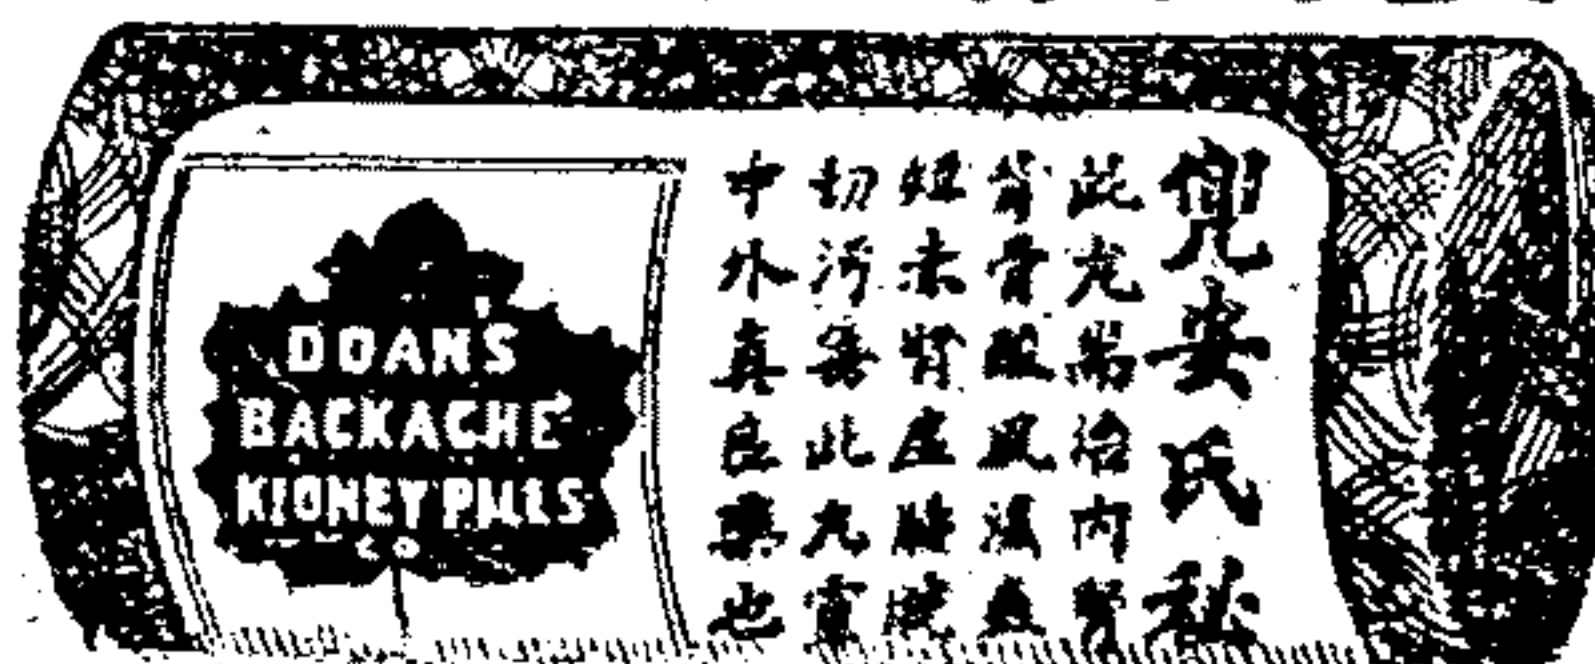 DOAN'S
BACKACHE
KIDNEY PILLS
兜安氏秘
此尤 治内腎
背骨酸風濕
赤腎
切污 此丸實
中外真良藥也